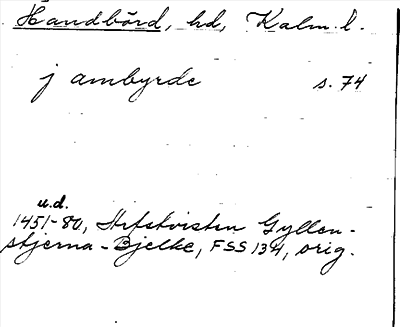 Handbörd, hd, Kalm. l.
j ambyrde s. 74
u.d.
1451-80, Arfstvisten Gyllen-
stjerna-Bjelke, FSS 134, orig.